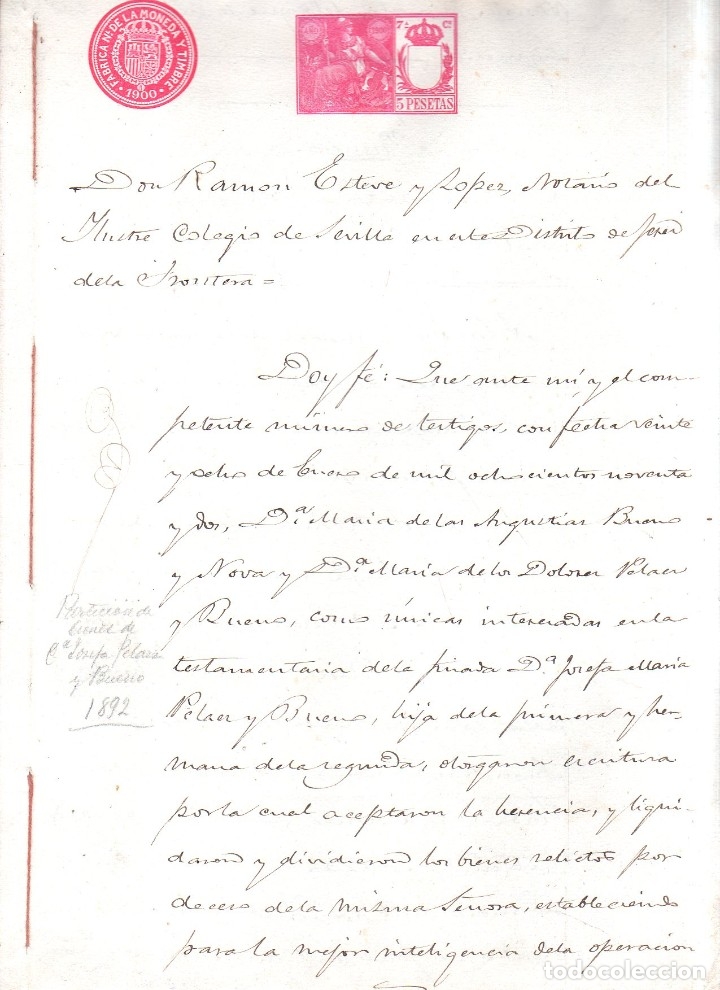 FABRICA Nl. DE LA MONEDA Y TIMBRE
1900
7ª Cª
5 PESETAS
Don Ramon Esteve y Lopez, Notario del
Ilustre Colegio de Sevilla en este Distrito de Jerez
de la Frontera =
Doy fé: Que ante mi y el com-
petente número de testigos, con fecha veinte
y ocho de Enero de mil ochocientos noventa
y dos, Dª. Maria de las Angustias Bueno
y Nova y Dª. Maria de los Dolores Pelaez
y Bueno, como únicas interesadas en la
testamentaria de la finada Dª. Josefa Maria
Pelaez y Bueno, hija de la primera y her-
mana de la segunda, otorgaron escritura
por la cual aceptaron la herencia, y liqui-
daron y dividieron los bienes relictos por
deceso de la misma Señora, estableciendo
para la mejor inteligencia de la operacion
Particion de
bienes de
Dª Josefa Pelaez
y Bueno
1892
todocoleccion.net